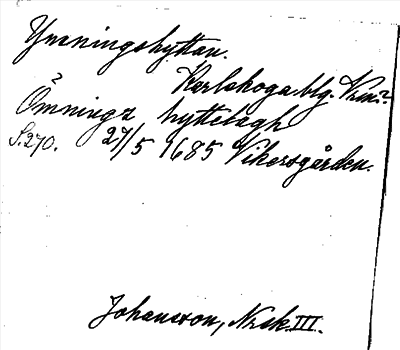 Ymningshyttan.
Karlskoga blg. Vrm?
Ömninga hyttelagh
S. 270. 27/5 1685 Vikersgården.
Johansson, Nrsk. III.